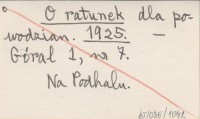 O ratunek dla po-
wodzian. 1925. —
Góral 1, nr 7.
Na Podhalu.